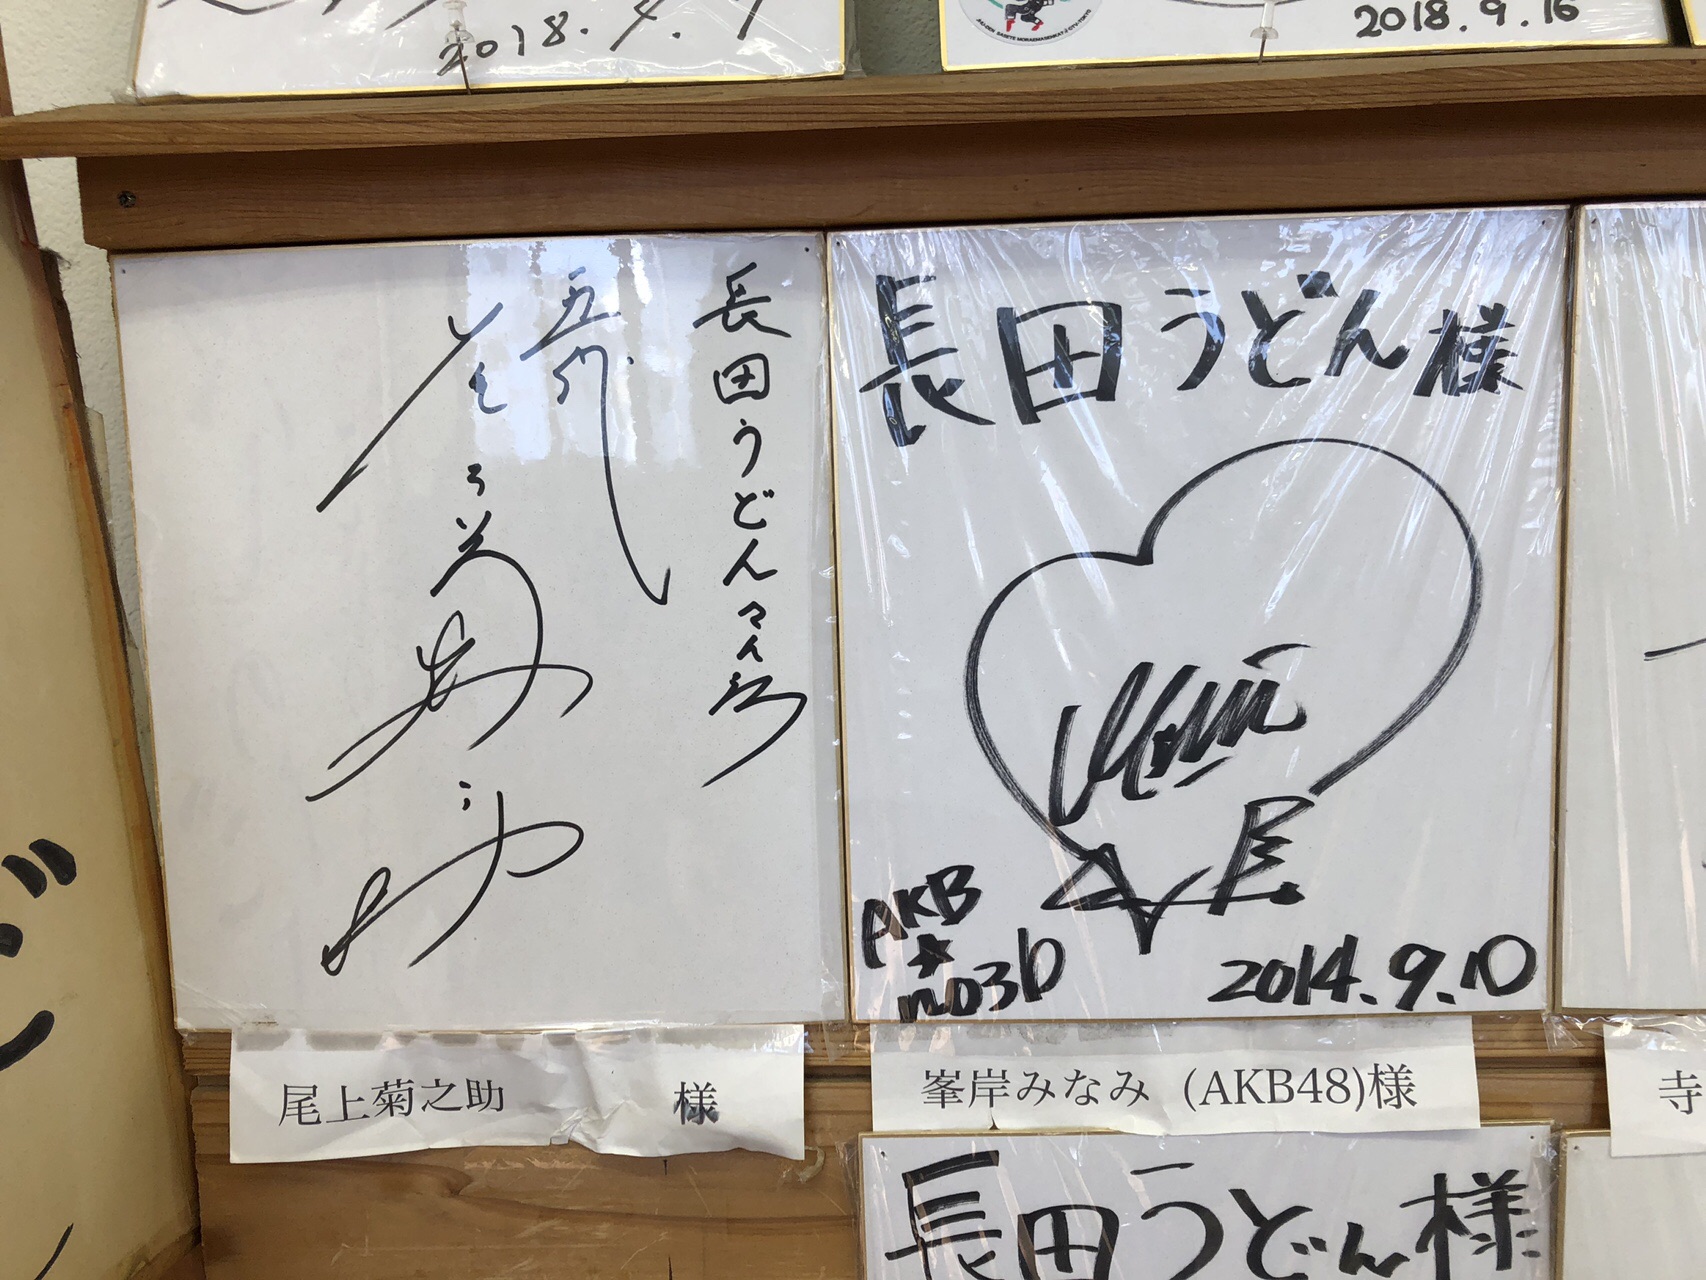 2018.4.7
2018.9.16
長田うどんさん江
五代
長田うどん様
AKB
★
no3b
2014.9.10
尾上菊之助 様
峯岸みなみ (AKB48)様
寺
長田うどん様